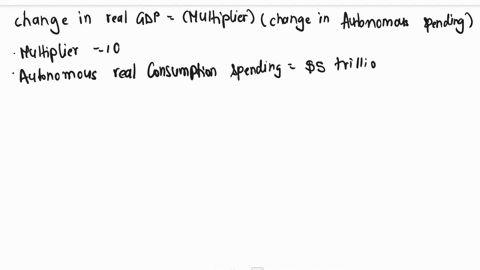 change in real GDP = (Multiplier) (change in Autonomous spending)
· Multiplier -10
· Autonomous real Consumption spending = $5 trillio